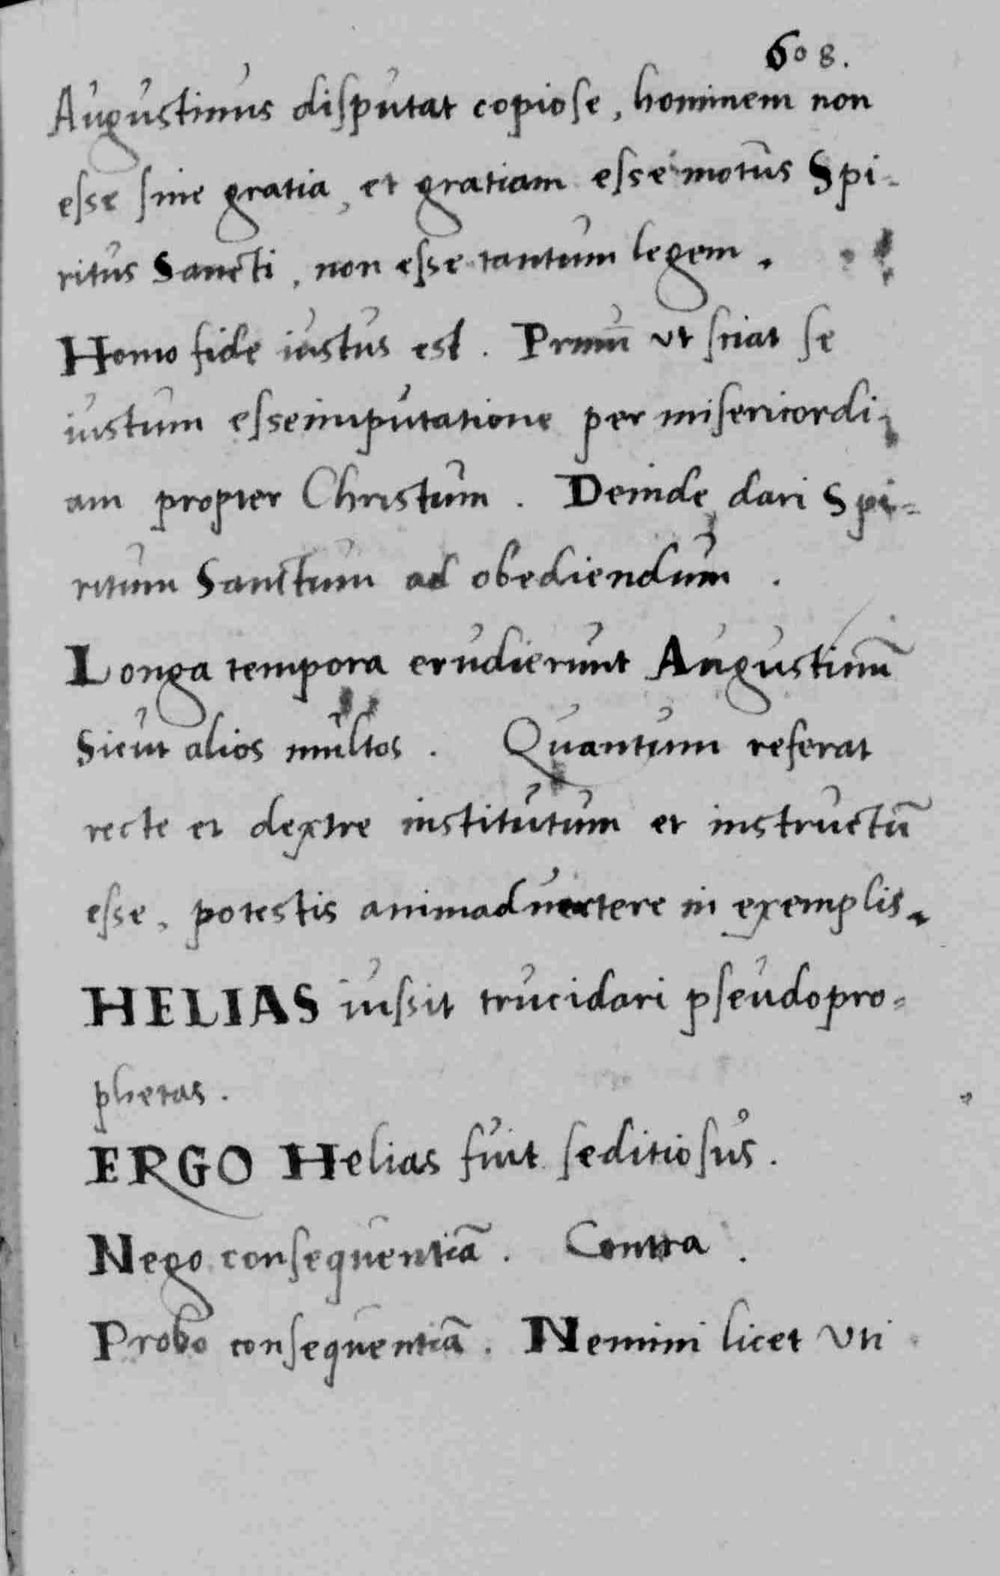 608.
Augustinus disputat copiose, hominem non
esse sine gratia, et gratiam esse motus Spi-
ritus Sancti, non esse tantum legem.
Homo fide iustus est. Primū ut sciat se
iustum esse imputatione per misericordi-
am propter Christum. Deinde dari Spi-
ritum Sanctum ad obediendum.
Longa tempora erudierunt Augustinū
Sicut alios multos. Quantum referat
recte et dextre institutum et instructū
esse, potestis animaduertere in exemplis.
HELIAS iussit trucidari pseudopro-
phetas.
ERGO Helias fuit seditiosus.
Nego consequentiā. Contra.
Probo consequentiā. Nemini licet uti